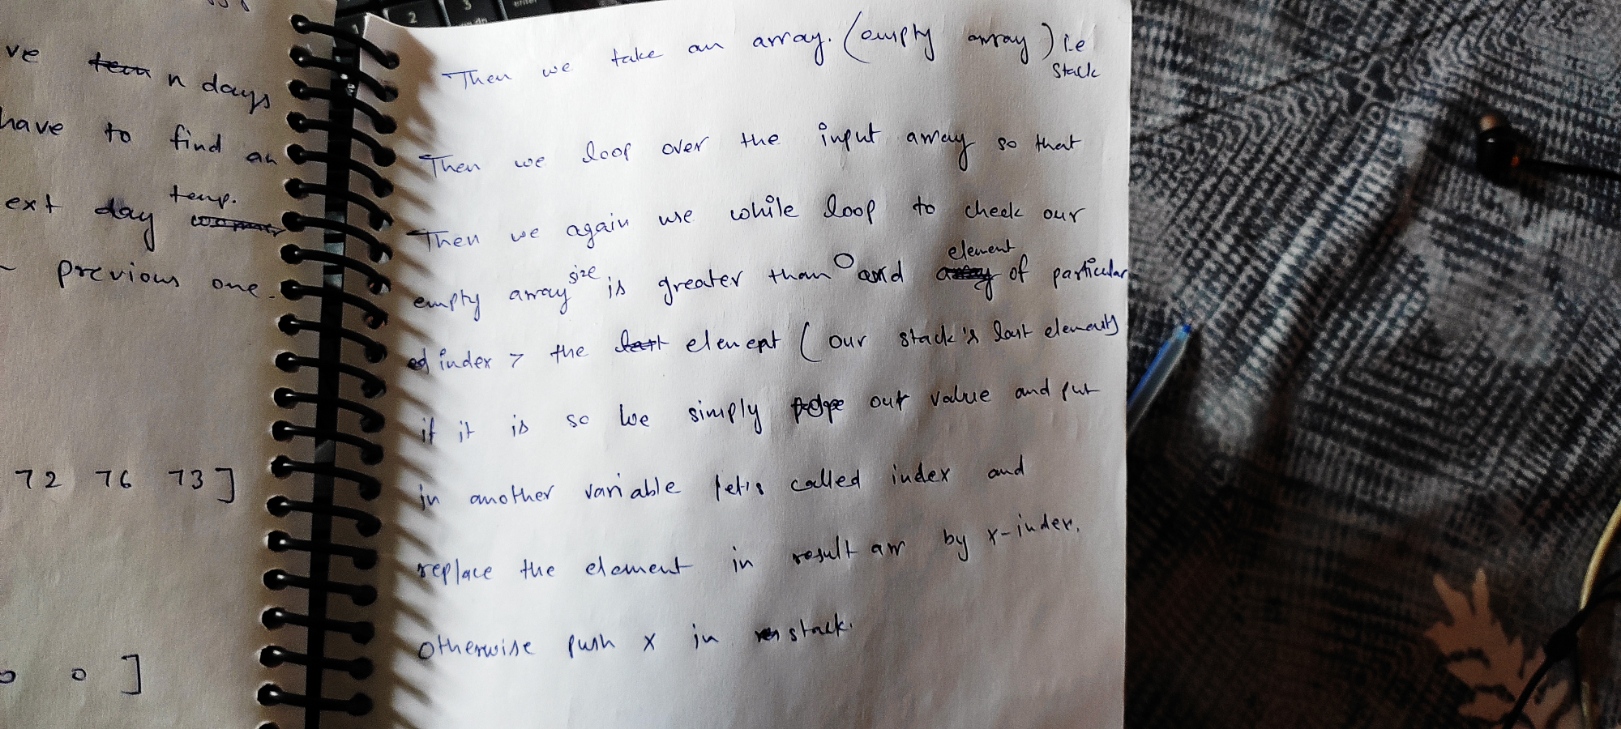 ve n days
have to find an
ext temp.
previous one.
72 76 73]
0 0 ]
Then we take an array. (empty array) i.e
stack
Then we loop over the input array so that
Then we again use while loop to check our
empty array size is greater than 0 and element of particular
index > the element (our stack's last element)
if it is so we simply our value and put
in another variable let's called index and
replace the element in result arr by x-index.
otherwise push x in stack.